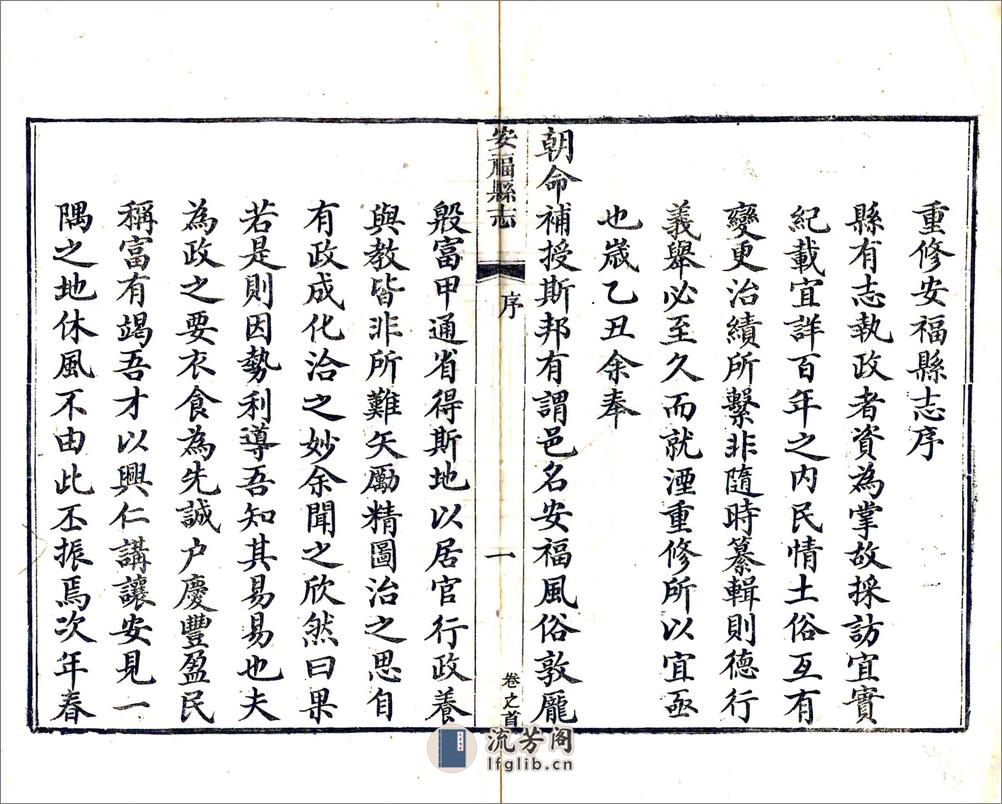 重修安福縣志序
縣有志執政者資為掌故採訪宜實
紀載宜詳百年之内民情土俗互有
變更治績所繫非隨時纂輯則德行
義舉必至久而就湮重修所以宜亟
也歲乙丑余奉
朝命補授斯邦有謂邑名安福風俗敦龐
安福縣志
序
一
卷之首
殷富甲通省得斯地以居官行政養
與教皆非所難矢勵精圖治之思自
有政成化洽之妙余聞之欣然曰果
若是則因勢利導吾知其易易也夫
為政之要衣食為先誠户慶豐盈民
稱富有竭吾才以興仁講讓安見一
隅之地休風不由此丕振焉次年春
流芳阁
lfglib.cn